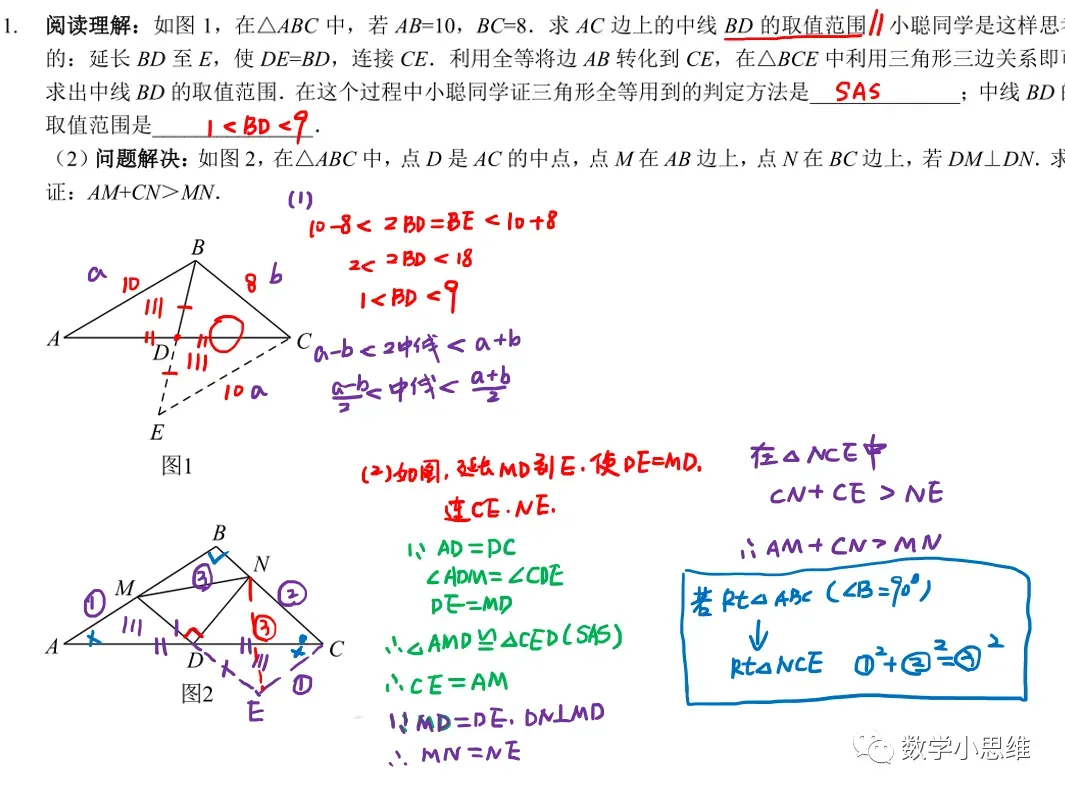 1. 阅读理解：如图 1，在△ABC 中，若 AB=10，BC=8．求 AC 边上的中线 BD 的取值范围∥小聪同学是这样思
的：延长 BD 至 E，使 DE=BD，连接 CE．利用全等将边 AB 转化到 CE，在△BCE 中利用三角形三边关系即
求出中线 BD 的取值范围．在这个过程中小聪同学证三角形全等用到的判定方法是 SAS ；中线 BD
取值范围是 1<BD<9 ．
（2）问题解决：如图 2，在△ABC 中，点 D 是 AC 的中点，点 M 在 AB 边上，点 N 在 BC 边上，若 DM⊥DN．求
证：AM+CN＞MN．
(1)
10-8< 2BD=BE <10+8
2< 2BD <18
1<BD<9
a-b<2中线<a+b
a-b/2<中线<a+b/2
B
a 10 8 b
A D C
10 a
E
图1
(2)如图，延长MD到E．使DE=MD．
连CE．NE．
∵ AD=DC
∠ADM=∠CDE
DE=MD
∴△AMD≌△CED(SAS)
∴CE=AM
∵MD=DE．DN⊥MD
∴ MN=NE
在△NCE中
CN+CE>NE
∴AM+CN>MN
若Rt△ABC（∠B=90°）
↓
Rt△NCE ①²+②²=③²
B
M ③ N
① ②
③
A D C
①
E
图2
数学小思维